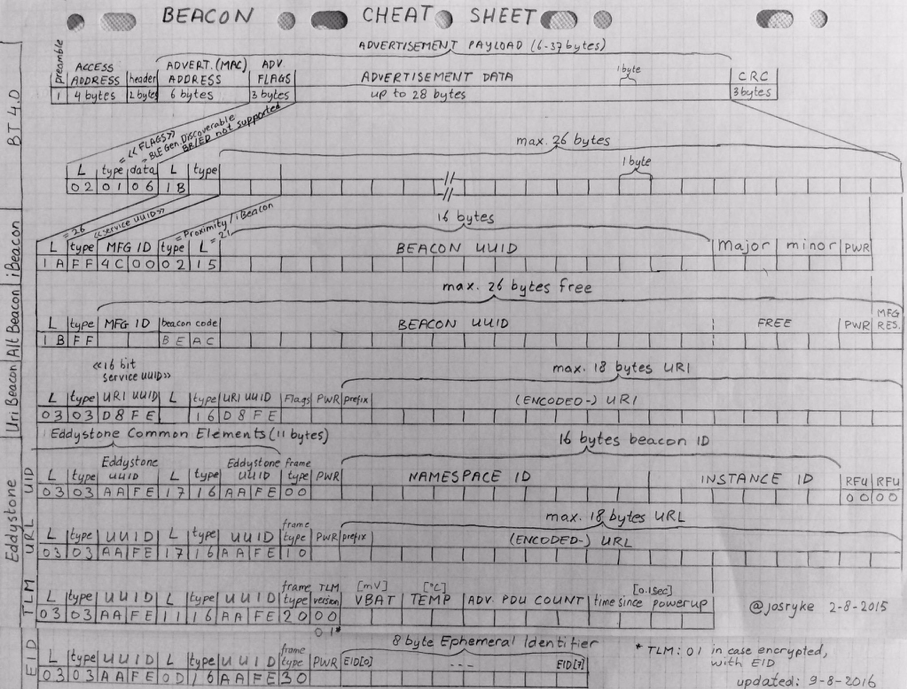 BEACON CHEAT SHEET
ADVERTISEMENT PAYLOAD (6-37 bytes)
preamble ACCESS ADDRESS header ADVERT. (MAC) ADDRESS ADV FLAGS ADVERTISEMENT DATA 1 byte CRC
1 4 bytes 2 bytes 6 bytes 3 bytes up to 28 bytes 3 bytes
BT 4.0
= <<FLAGS>>
= BLE Gen. Discoverable
BR/ED not supported
max. 26 bytes
L type data L type 1 byte
02 01 06 1B
= 26 <<service UUID>> = Proximity/iBeacon = 21 16 bytes
iBeacon
L type MFG ID type L BEACON UUID Major minor PWR
1A FF 4C 00 02 15
max. 26 bytes free
Alt Beacon
L type MFG ID beacon code BEACON UUID FREE PWR MFG RES.
1B FF BE AC
<<16 bit
service UUID>>
max. 18 bytes URI
Uri Beacon
L type URI UUID L type URI UUID Flags PWR prefix (ENCODED-) URI
03 03 D8 FE 16 D8 FE
Eddystone Common Elements (11 bytes)
16 bytes beacon ID
Eddystone
UID
L type Eddystone UUID L type Eddystone UUID frame type PWR NAMESPACE ID INSTANCE ID RFU RFU
03 03 AA FE 17 16 AA FE 00 00 00
max. 18 bytes URL
URL
L type UUID L type UUID frame type PWR prefix (ENCODED-) URL
03 03 AA FE 17 16 AA FE 10
TLM
L type UUID L type UUID frame type TLM version [mV] VBAT [°C] TEMP ADV. PDU COUNT [0.1sec] time since powerup
03 03 AA FE 11 16 AA FE 20 00
01*
@josryke 2-8-2015
8 byte Ephemeral Identifier
EID
L type UUID L type UUID frame type PWR EID[0] --- EID[7]
03 03 AA FE 0D 16 AA FE 30
* TLM: 01 in case encrypted,
with EID
updated: 9-8-2016